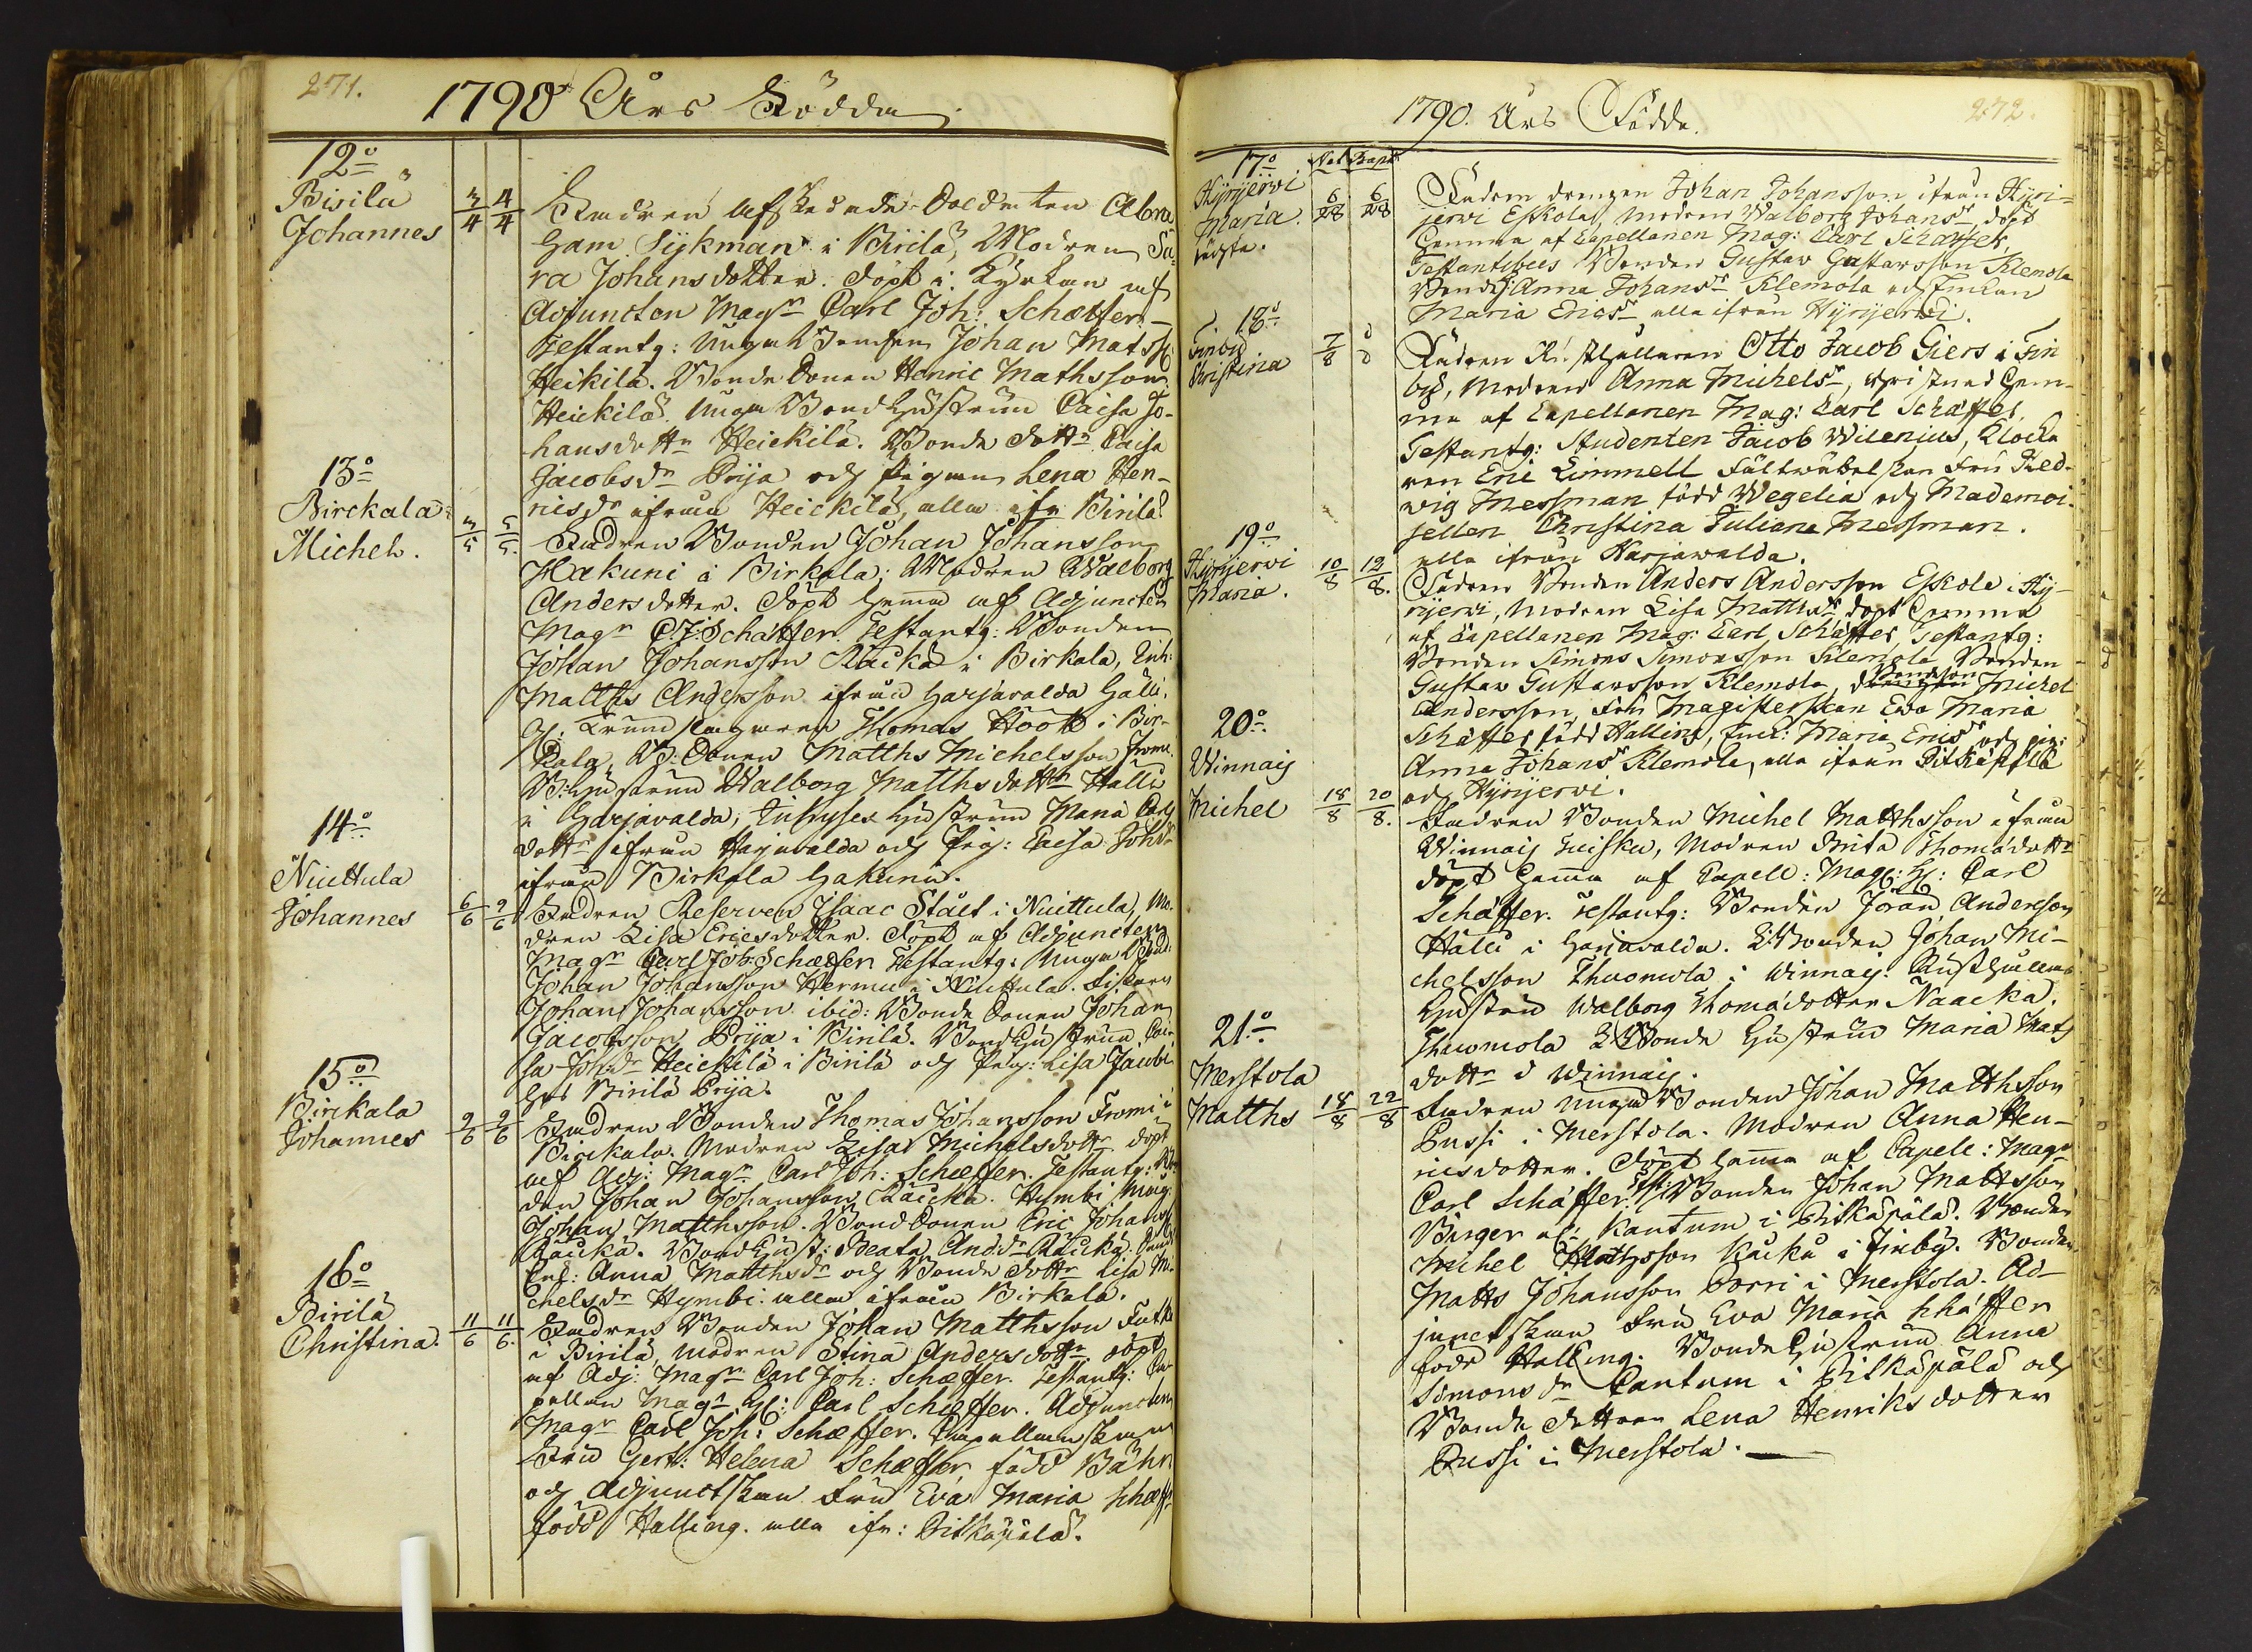 271.
1790 Års Födde
12º
Birilä
Johannes
3/4 4/4
Fadren Afskedade Soldaten Abra
ham Sÿkman i Birilä, Modren Sa-
ra Johansdotter. döpt i Kyrkan af
Adjuncten Magr Carl Joh: Schæffer.
Testantg: Unga Bonden Johan Matss:
Heikilä. Bonde Sonen Henric Mathsson
Heickilä Unga Bondhustrun Caisa Jo-
hansdottr Heickilä. Bonde Dottr Caisa
Jacobsdr Prija och Pigan Lena Hen-
ricsdr ifrån Heickilä, alla ifr Birilä
13º
Birckala
Michel.
3/5 5/5.
Fadren Bonden Johan Johansson
Hakuni i Birkala; Modren Walborg
Andersdotter. döpt hema af Adjuncten
Magr C.J. Schäffer. Testantg: Bonden
Johan Johansson Räckä i Birkala, Enk:
Matths Andersson ifrån Harjavalda Halli.
Thomas Höök i Bir-
kala, B: Sonen Matths Michelsson Fromi
B: hustrun Walborg Matthsdottr Halli
i Harjavalda, hustrun Maria Carls
dottr ifrån Harjavalda och Pig: Caisa Johsdr
ifrån Birkala Hakuni.
14º
Niuttula
Johannes
6/6 9/6
Fadren Reserven Isaac Stålt i Niuttula, Mo-
dren Lisa Ericsdotter. döpt af Adjuncten
Magr Carl Joh: Schæffer Testantg: Unga Bond:
Johan Johansson Hermu i Niuttula.
Johan Johansson ibid: Bonde Sonen Johan
Jacobsson Prija i Birilä. Bondhustrun Cai-
sa Joh:dr Heickilä i Birilä och Pig: Lisa Jacobs
Birilä Prija.
15º
Birckala
Johannes
9/6 9/6
Fadren Bonden Thomas Johansson Fromi i
Birckala. Modren Lisa Michelsdottr döpt
af Adj: Magr Carl Joh: Schæffer. Testantg: Bon
den Johan Johansson Räckä. Hymbi Måg:
Johan Matthsson. Bond Sonen Eric Johanss
Räckä. Bondhust: Beata Andsdr Räckä.
Anna Matthsdr och Bonde Dottr Lisa Mi-
chelsdr Hymbi. alla ifrån Birkala.
16º
Birilä
Christina.
11/6 11/6.
Fadren Bonden Johan Matthsson
i Birilä, modren Stina Andersdottr döpt
af Adj: Magr Carl Joh: Schæffer. Testantg: Ca-
pellan Magr H: Carl Schæffer. Adjuncten
Magr Carl Joh: Schæffer. Capellanskan
Fru Gert: Helena Schæffer född Bähr
och Adjunctskan Fru Eva Maria Schæff:
född Halling. alla ifr: Pitkäpälä.
272.
1790. Års Födde.
17º Nat. Bapt.
Hÿrijerwi
Maria.
oägta.
6/8 6/8
Fadren drengen Johan Johansson ifrån Hÿri-
jerwi Eskola, modren Walborg Johansdr, döpt
hemma af Capellanen Mag: Carl Schäffer,
Testantibus Bonden Gustav Gustavsson Klemola
Bondh: Anna Johansdr Klemola och Enkan
Maria Ericsdr alla ifrån Hÿrijerwi.
18º
Finby
Christina
7/8
Fadren Rusthållaren Otto Jacob Giers i Fin
by, modren Anna Michelsdr, christnad hem-
ma af Capellanen Mag: Carl Schäffer.
Testantg: Studenten Jacob Wilenius, Klocka
ren Eric Limmell Fältwäbelskan Fru Hed-
wig Messman född Wegelia och Mademoi-
sellen Christina Juliana Messman.
alla ifrån Harjawalda.
19º
Hÿrijerwi
Maria.
10/8 12/8.
Fadren Bonden Anders Andersson Eskola i Hÿ-
rijerwi, modren Lisa Matthsdr döpt hemma
af Capellanen Mag: Carl Schäffer, Testantg:
Bonden Simons Simonsson Klemola Bonden
Gustav Gustavsson Klemola, Bondson Michel
Andersson, Fru Magisterskan Eva Maria
Schäffer född Halling, Enk: Maria Ericsdr och pig:
Anna Johansdr Klemola, alla ifrån Pitkäpälä
och Hÿrijerwi.
20º
Winnais
Michel
18/8 20/8.
Fadren Bonden Michel Matthsson ifrån
Winnais Huisku, Modren Brita Thomædottr
döpt hema af Capell: Mag: H: Carl
Schäffer. Testantg: Bonden Jöran Andersson
Halli i Harjavalda. Bonden Johan Mi-
chelsson Thuomola i Winnais. Rusthållare
Hustru Walborg Thomædotter Naacka.
Thuomola Bonde Hustrun Maria Mats
dottr i Winnais.
21º
Merstola
Matths
18/8 22/8
Fadren unga Bonden Johan Matthsson
Pussi i Merstola. Modren Anna Hen-
ricsdotter. döpt hema af Capell: Magr
Carl Schäffer. Test: Bonden Johan Mattsson
Birger Kantum i Pitkäpälä. Bonden
Michel Mathsson Kåckå i Finby. Bonden
Matts Johansson Sorri i Merstola. Ad-
junctskan Fru Eva Maria Schäffer
född Halling. Bonde Hustrun Anna
Simons dr Cantum i Pitkäpälä och
Bonde Dottren Lena Henriksdotter
Pussi i Merstola.